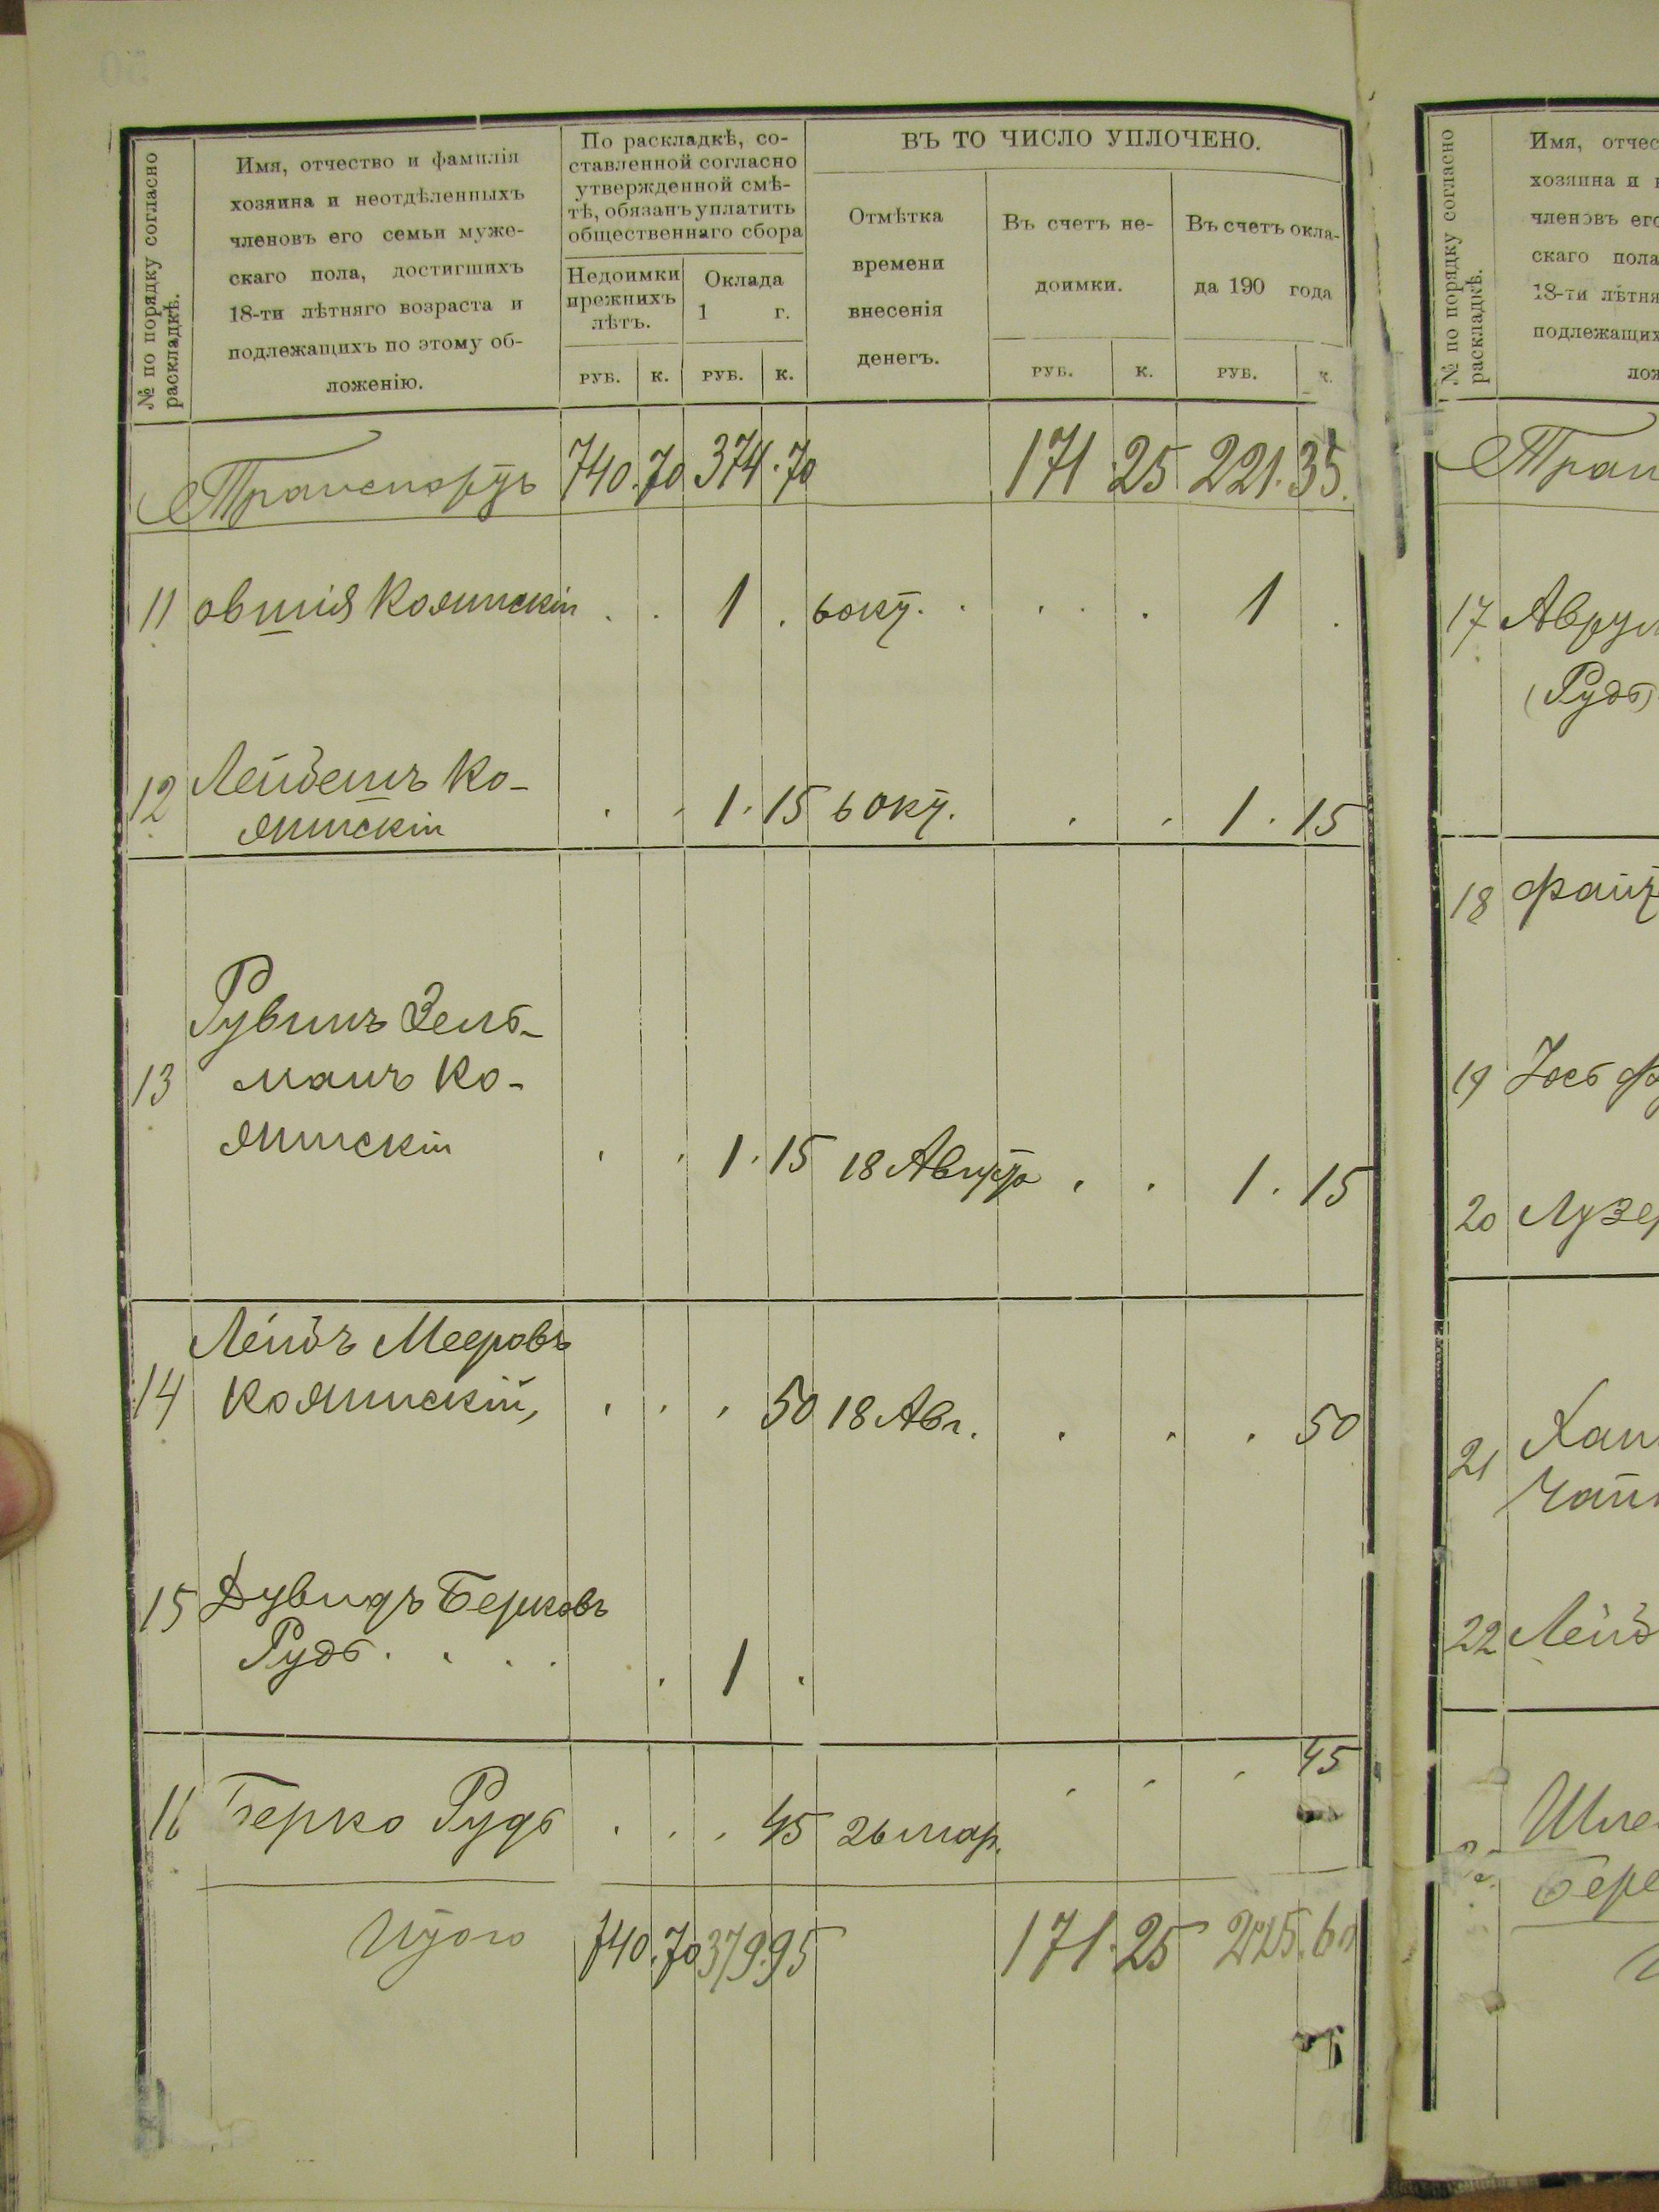 № по порядку согласно
раскладкѣ.
Имя, отчество и фамилія
хозяина и неотдѣленныхъ
членовъ его семьи муже-
скаго пола, достигшихъ
18-ти лѣтняго возраста и
подлежащихъ по этому об-
ложенію.
По раскладкѣ, со-
ставленной согласно
утвержденной смѣ-
тѣ, обязанъ уплатить
общественнаго сбора
Недоимки
прежнихъ
лѣтъ.
Оклада
1 г.
РУБ. К. РУБ. К.
ВЪ ТО ЧИСЛО УПЛОЧЕНО.
Отмѣтка
времени
внесенія
денегъ.
Въ счетъ не-
доимки.
РУБ. К.
Въ счетъ окла-
да 190 года
РУБ. К.
Транспортъ 740. 70 374. 70 171 25 221. 35.
11 овшія Коянискій . . 1 . 6 окт. . . . 1 .
12 Лейбешъ Ко-
янискій . . 1. 15 6 окт. . . 1. 15
Рувинъ Зель-
13 манъ Ко-
янискій . . 1. 15 18 Августа . . 1. 15
Лейбъ Мееровъ
14 Коянискій, . . . 50 18 Авг. . . . 50
15 Дувидъ Берковъ
Рудь . . . . . 1 .
16 Берко Рудь . . . 45 26 мар. . . . 45
Итого 740. 70 379. 95 171. 25 225. 60
№ по порядку согласно
раскладкѣ.
Имя, отчес
хозяина и
членовъ его
скаго пола
18-ти лѣтня
подлежащихъ
лож
Тран
17 Аврум
(Рудь)
18 Файт
19
20 Лузер
21 Хаи
Чап
22 Лейб
Шле
Бере